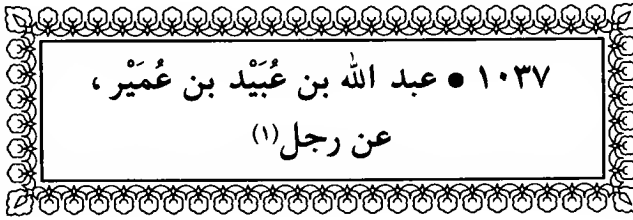 ١٠٣٧ ● عبد الله بن عُبَيْد بن عُمَيْر ،
عن رجل(١)